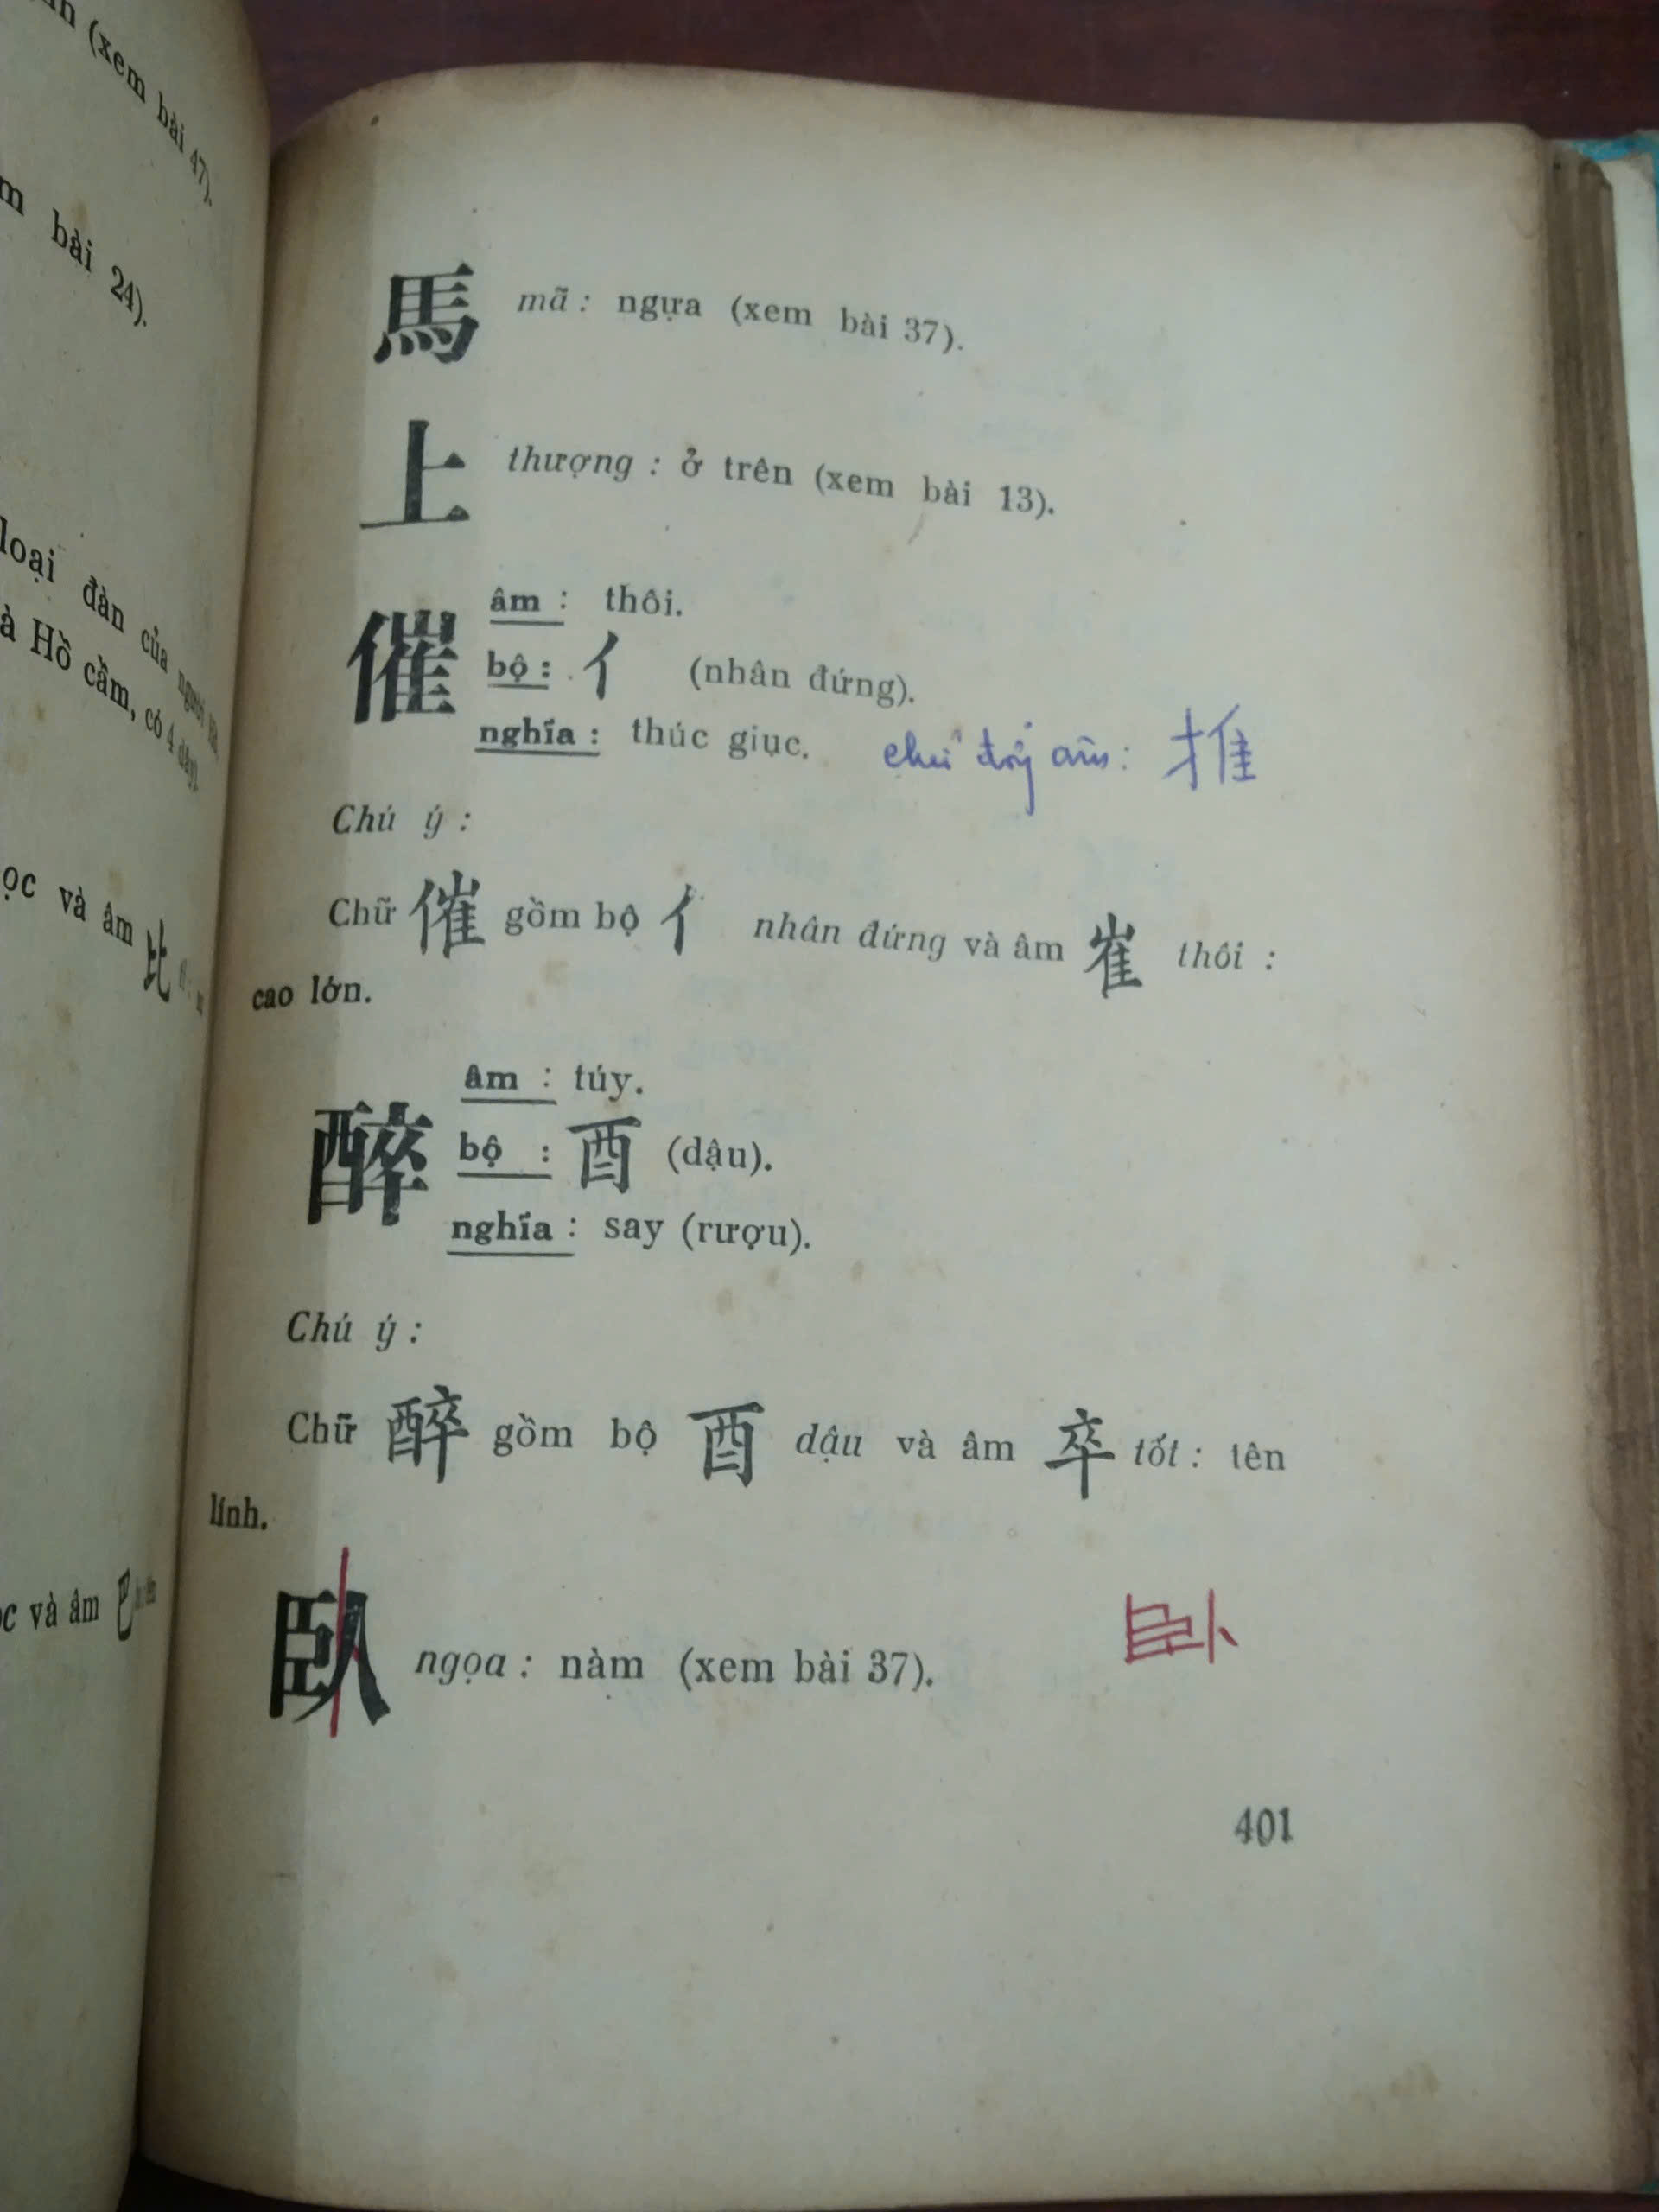 (xem bài 47).
bài 24).
loại đàn của người
Hồ cầm, có 4 dây).
và âm 比
và âm 巴
馬 mã : ngựa (xem bài 37).
上 thượng : ở trên (xem bài 13).
催 âm : thôi.
bộ : 亻 (nhân đứng).
nghĩa : thúc giục. chữ đồng âm : 推
Chú ý :
Chữ 催 gồm bộ 亻 nhân đứng và âm 崔 thôi :
cao lớn.
醉 âm : túy.
bộ : 酉 (dậu).
nghĩa : say (rượu).
Chú ý :
Chữ 醉 gồm bộ 酉 dậu và âm 卒 tốt : tên
lính.
臥 ngọa : nằm (xem bài 37). 卧
401